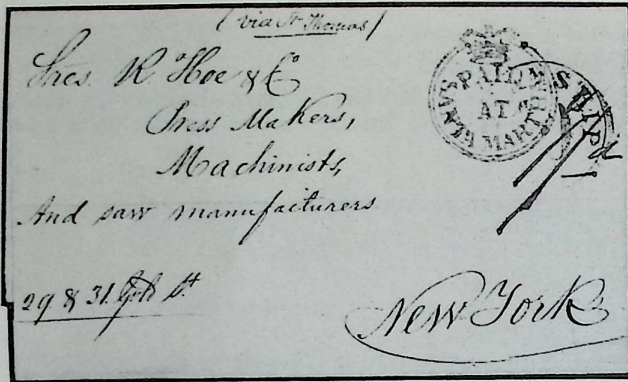 (via St Thomas)
Sres. R. Hoe & Co
Press Makers,
Machinists,
And saw manufacturers
29 & 31. Gold St.
New York
PAID
AT
SANTA MARTHA
SHIP